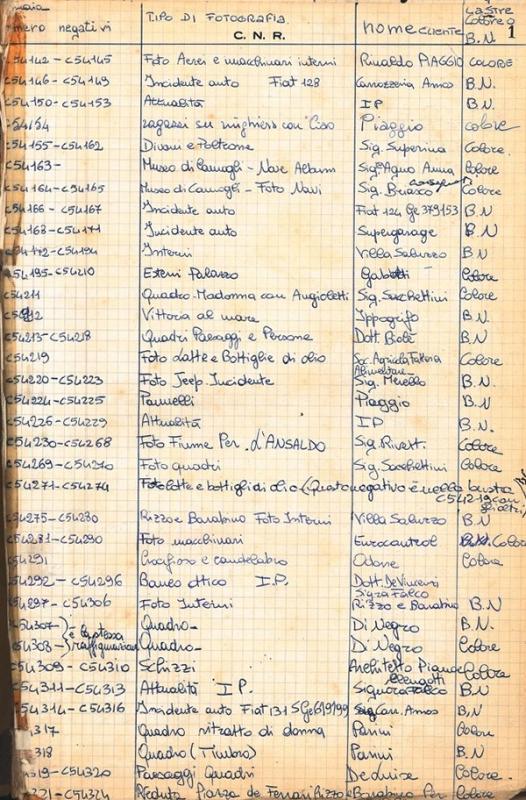 mero negativi TIPO DI FOTOGRAFIA C. N. R. nome CLIENTE LASTRE Colore o B.N. 1
C54142-C54145 Foto Aerei e macchinari interni Rinaldo PIAGGIO COLORE
C54146-C54149 Incidente auto Fiat 128 Carrozzeria Amos B.N.
C54150-C54153 Attualità IP B.N.
C54154 ragazzi su con "Ciao Piaggio colore
C54155-C54162 Divani e Poltrone Sig. Superina Colore.
C54163- Museo di Camogli - Nave Sig.ra Anna Colore
C54164-C54165 Museo di Camogli - Foto Navi Sig. Colore
C54166-C54167 Incidente auto Fiat 124 Ge 379153 B.N
C54168-C54171 Incidente auto Supergarage B.N
C54172-C54194 Interni Villa Saluzzo B.N
C54195-C54210 Esterni Palazzo Colore
C54211 Quadro-Madonna con Angioletti Sig. Sacchettini Colore
C54212 Vittoria al mare Ippogrifo B.N.
C54213-C54218 Quadri Paesaggi e Persone Dott. B.N
C54219 Foto Latte e Bottiglie di olio Soc. Agricola Fattoria Alimentare Colore
C54220-C54223 Foto Jeep-Incidente Sig. Merello B.N.
C54224-C54225 Pannelli Piaggio B.N
C54226-C54229 Attualità IP B.N.
C54230-C54268 Foto Fiume Per L'ANSALDO Sig. Rivert. Colore
C54269-C54270 Foto quadri Sig. Sacchettini Colore
C54271-C54274 Foto latte e bottiglie di olio (Questo negativo è nella busta C54219 con gli altri)
C54275-C54280 Rizzo e Barabino Foto Interni Villa Saluzzo B.N
C54281-C54290 Foto macchinari Eurocontrol Colore
C54291 Crocifisso e candelabro Odone Colore
C54292-C54296 Banco ottico I.P. Dott. De Vincenzi Sig.ra Falco
C54297-C54306 Foto Interni Rizzo e Barabino B.N
C54307 Quadro- Di Negro B.N.
C54308- è la stessa raffigurazione Quadro- Di Negro Colore
C54309-C54310 Schizzi Architetto Colore
C54311-C54313 Attualità I.P. Signora Falco B.N
C54314-C54316 Incidente auto Fiat 131 Ge Carr. Amos B.N
317 Quadro ritratto di donna Panini Colore
318 Quadro (Timbro) Panini B.N
319-C54320 Paesaggi Quadri Colore.
321-C54324 Veduta Piazza de Ferrari Rizzo e Barabino Per Colore